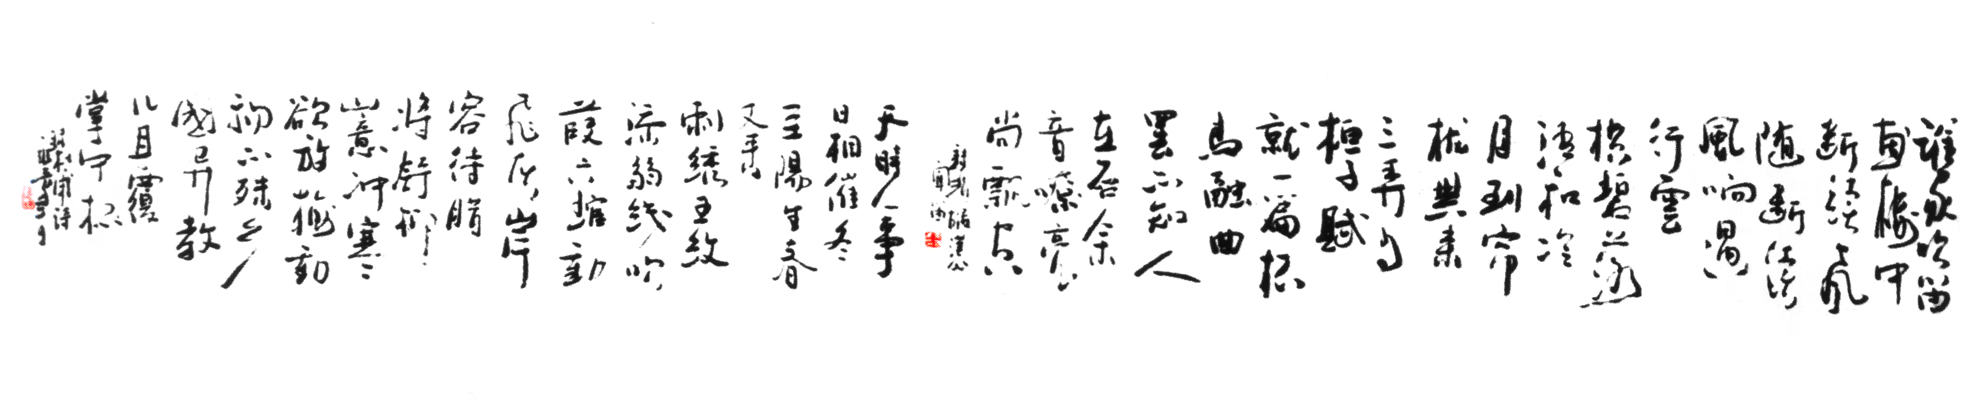 誰家吹笛
画楼中
断续声
随断续
風响遏
行雲
横碧落
清和冷
月到帘
栊興来
三弄有
桓子賦
就一篇怀
馬融曲
罢不知人
在否余
音嘹亮
尚飘空
天時人事
日相催冬
至陽生春
又来
刺绣五纹
添弱线吹
葭六琯動
飛灰岸
容待腊
将舒柳
山意冲寒
欲放梅雲
物不殊乡
國异教
儿且覆
掌中杯